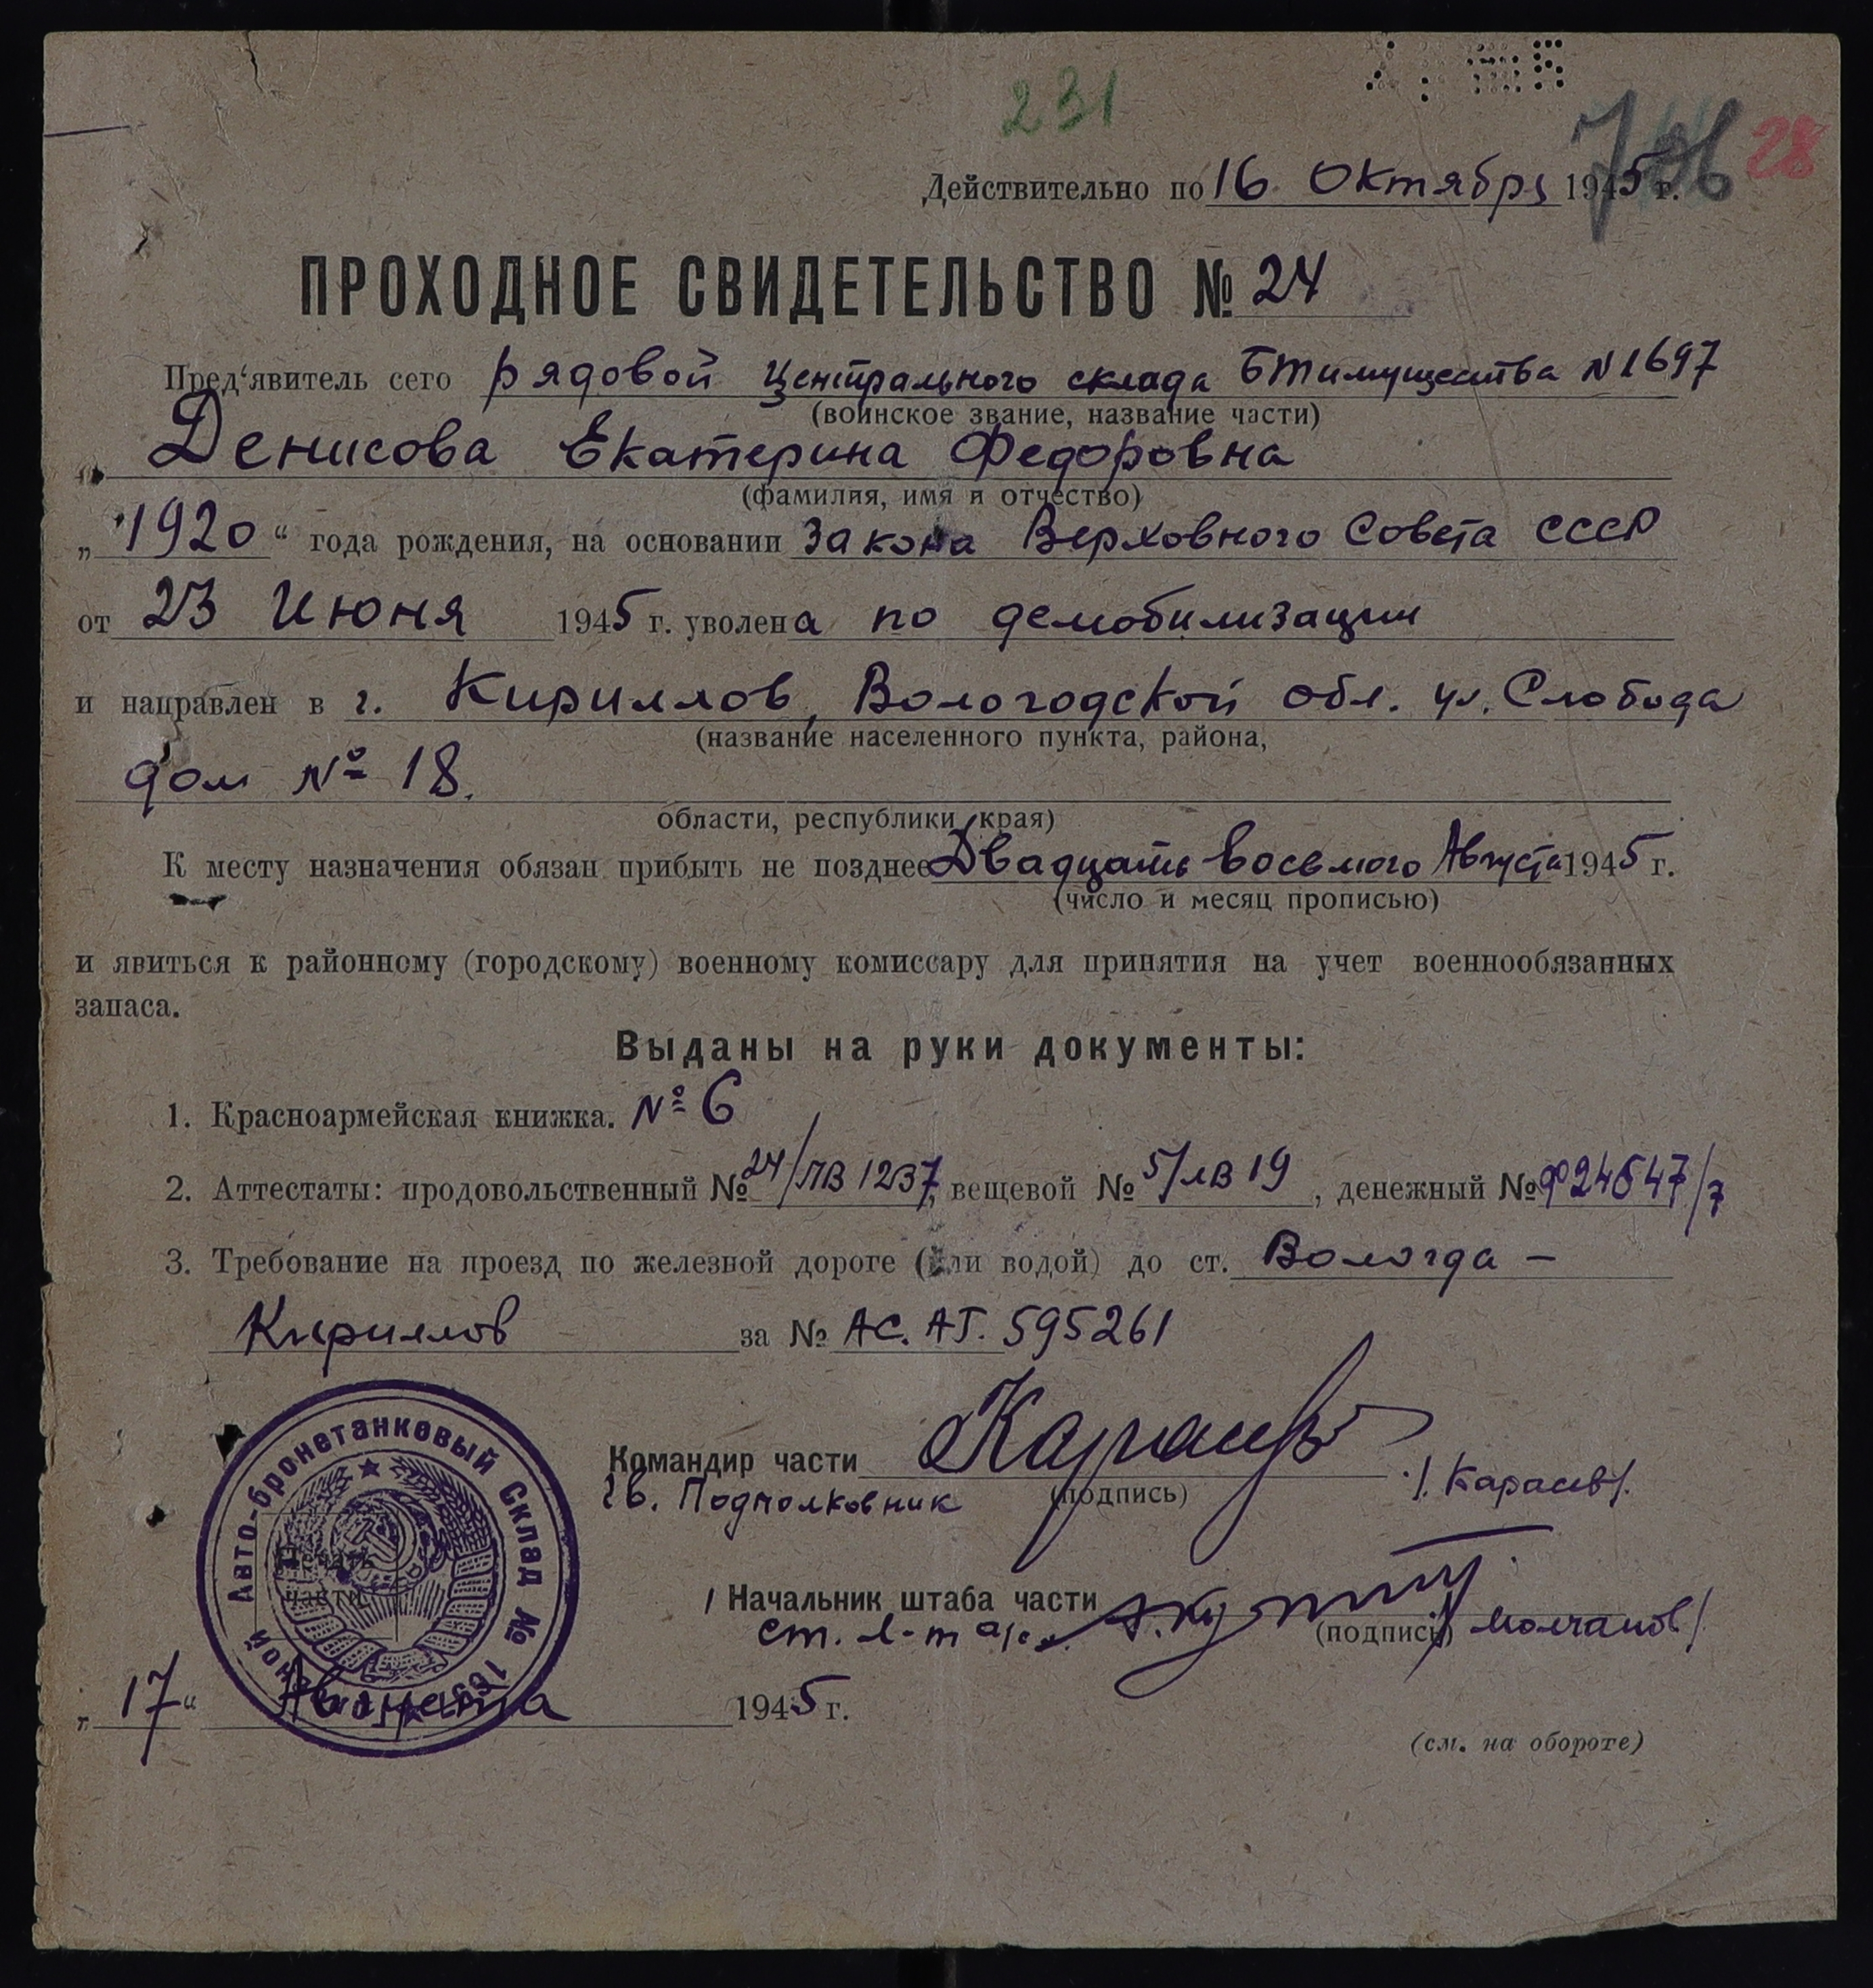 231
706 28
Действительно по 16 Октября 1945 г.
ПРОХОДНОЕ СВИДЕТЕЛЬСТВО № 24
Пред‘явитель сего рядовой Центрального склада БТимущества N 1697
(воинское звание, название части)
Денисова Екатерина Федоровна
(фамилия, имя и отчество)
„ 1920 “ года рождения, на основании Закона Верховного Совета СССР
от 23 Июня 1945 г. уволена по демобилизации
и направлен в г. Кириллов, Вологодской обл. ул. Слобода
(название населенного пункта, района,
дом № 18.
области, республики, края)
К месту назначения обязан прибыть не позднее Двадцать восьмого Августа 1945 г.
(число и месяц прописью)
и явиться к районному (городскому) военному комиссару для принятия на учет военнообязанных
запаса.
Выданы на руки документы:
1. Красноармейская книжка. № 6
2. Аттестаты: продовольственный № 24/ЛВ 1237, вещевой № 5/ЛВ 19, денежный № Ф24647/7
3. Требование на проезд по железной дороге (или водой) до ст. Вологда –
Кириллов за № АС. АГ. 595261
Командир части Карасев /. Карасев/.
Гв. Подполковник (подпись)
Авто-бронетанковый Склад №
Печать
части
/ Начальник штаба части
ст. л-т а/с (подпись) / Молчанов/
„ 17 “ Августа 1945 г.
(см. на обороте)